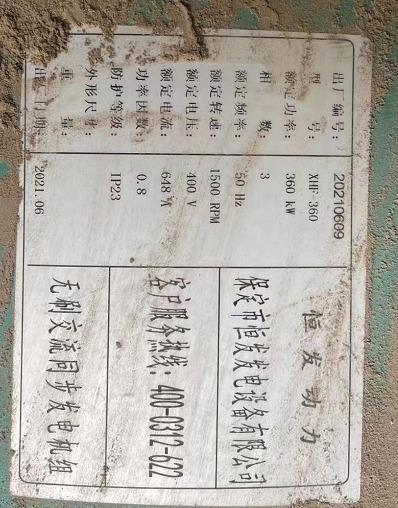 出厂编号: 20210609
型 号: XHF-360
额定功率: 360 kW
相 数: 3
额定频率: 50 Hz
额定转速: 1500 RPM
额定电压: 400 V
额定电流: 648 A
功率因数: 0.8
防护等级: IP23
外形尺寸:
重 量:
出厂日期: 2021.06
恒发动力
保定市恒发发电设备有限公司
客户服务热线: 400-0312-622
无刷交流同步发电机组